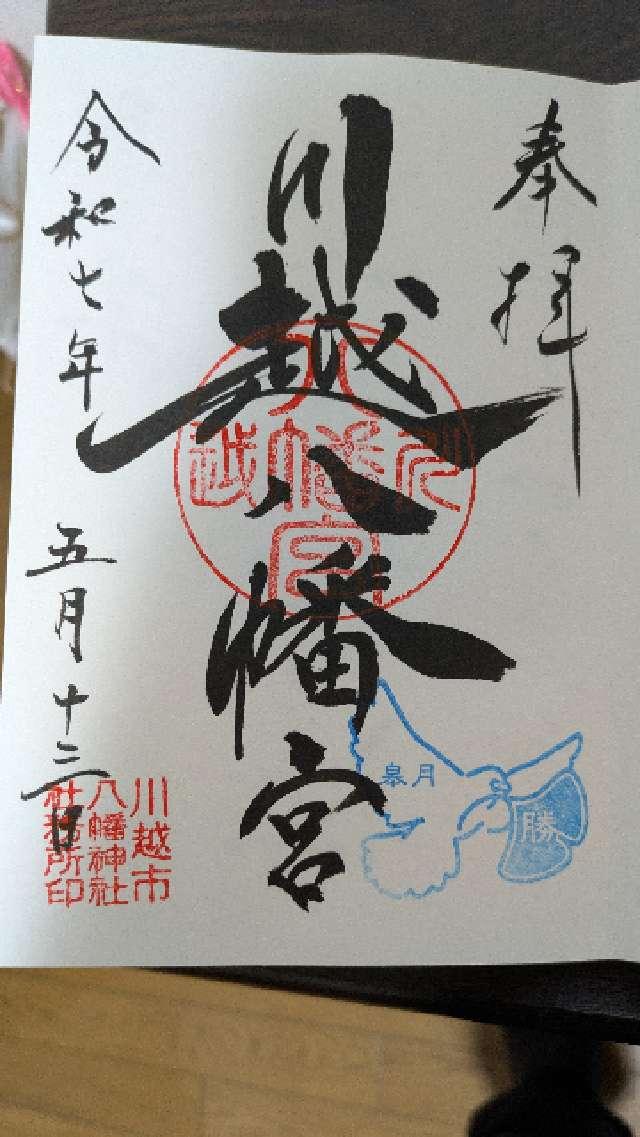 奉拝
川越八幡宮
川越八幡宮
皐月
勝
令和七年
五月十三日
川越市
八幡神社
社務所印